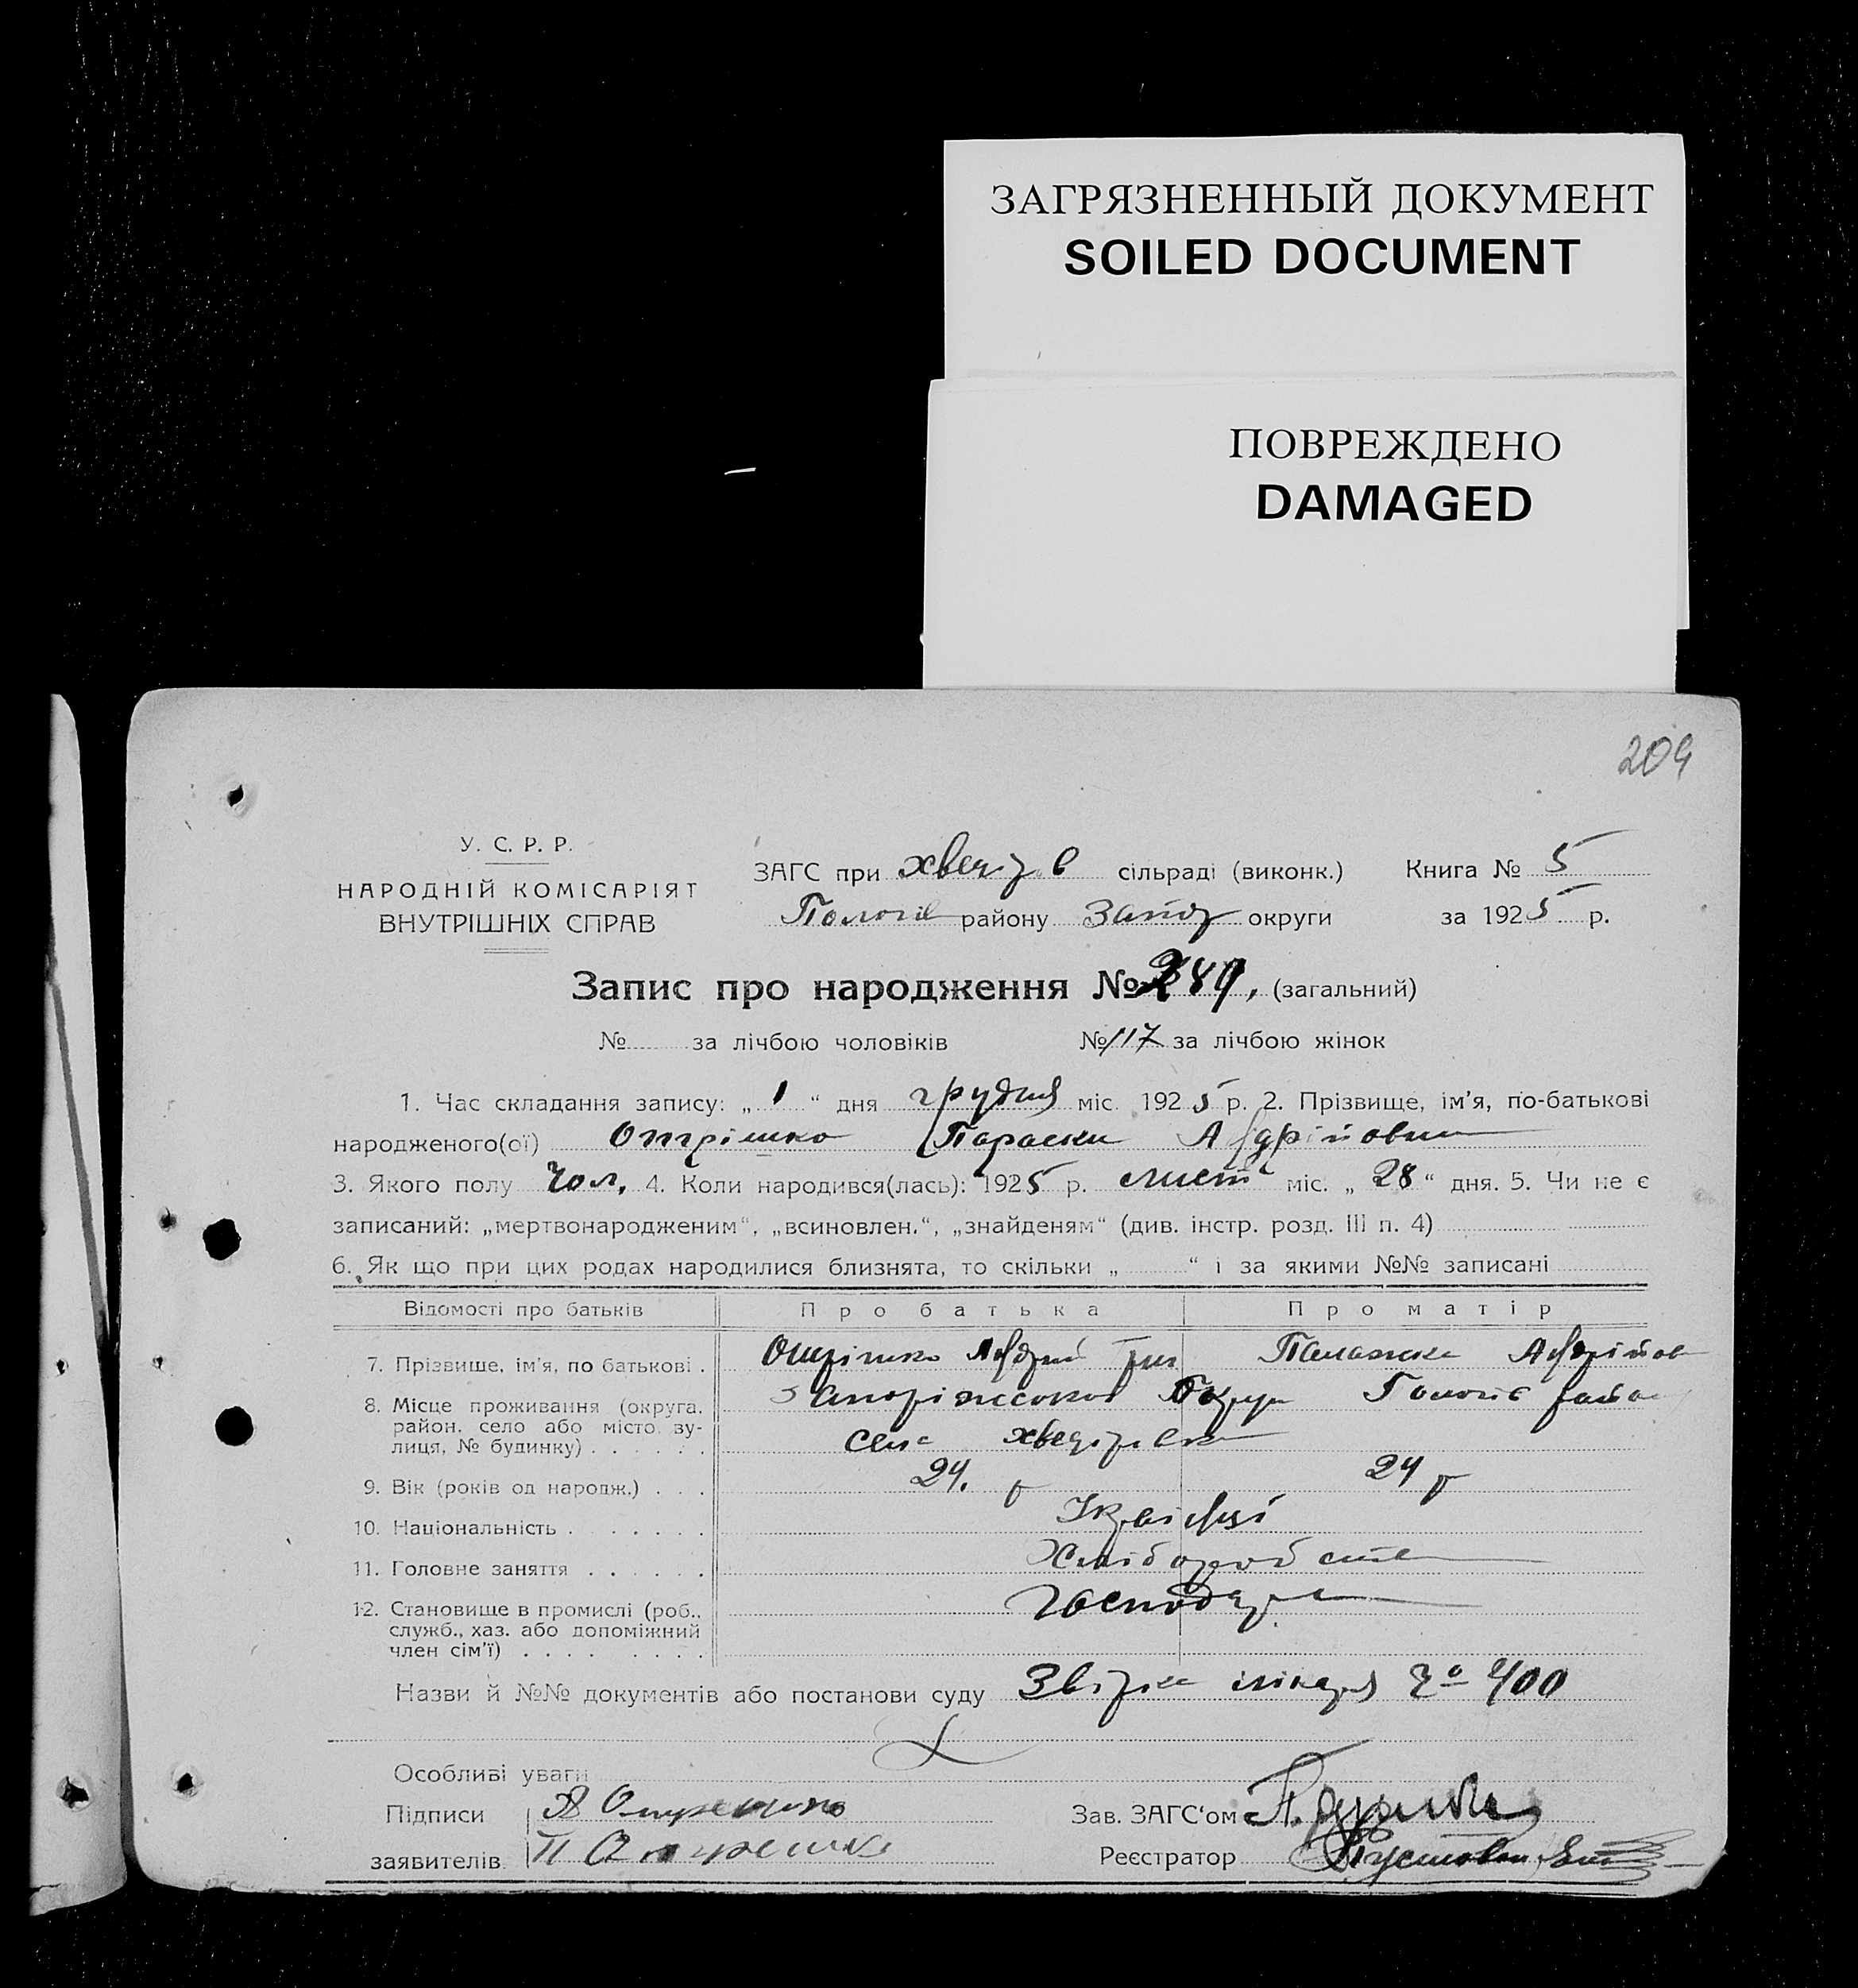 ЗАГРЯЗНЕННЫЙ ДОКУМЕНТ
SOILED DOCUMENT
ПОВРЕЖДЕНО
DAMAGED
204
У. С. Р. Р.
НАРОДНІЙ КОМІСАРІЯТ
ВНУТРІШНІХ СПРАВ
ЗАГС при хведр в сільраді (виконк.) Книга № 5
Пологів району Запор округи за 1925 р.
Запис про народження № 289, (загальний)
№ за лічбою чоловіків № 117 за лічбою жінок
1. Час складання запису: „ 1 “ дня грудня міс. 1925 р. 2. Прізвище, ім’я, по-батькові
народженого(ої) Отрішко Параски
3. Якого полу чол, 4. Коли народився(лась): 1925 р. лист міс. „ 28 “ дня. 5. Чи не є
записаний: „мертвонародженим“, „всиновлен.“, „знайденям“ (див. інстр. розд. III п. 4)
6. Як що при цих родах народилися близнята, то скільки „ “ і за якими №№ записані
Відомості про батьків Про батька Про матір
7. Прізвише, ім’я, по батькові . Отрішко
8. Місце проживання (округа, Округи
район, село або місто, зу-
лиця, № будинку) . . . . . . села
9. Вік (років од народж.) . . . 24. р 24 р
10. Національність . . . . . . .
11. Головне заняття . . . . . . Хліборобств
12. Становище в промислі (роб., Господар
служб., хаз. або допоміжний
член сім’ї) . . . . . . . .
Назви й №№ документів або постанови суду 400
Особливі уваги
Підписи
заявителів.
Зав. ЗАГС‘ом
Реєстратор